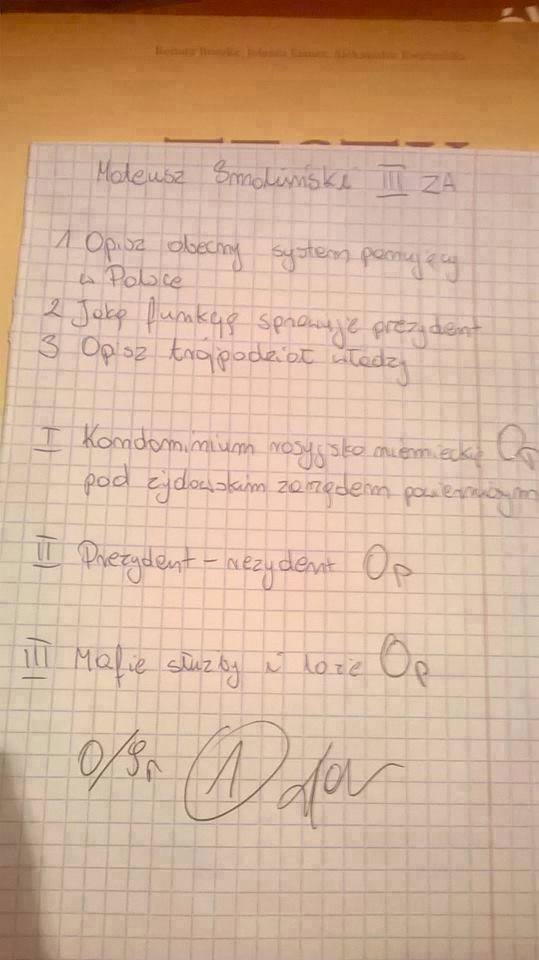 Mateusz Smoliński III ZA
1 Opisz obecny system panujący
w Polsce
2 Jaką funkcję sprawuje prezydent
3 Opisz trójpodział władzy
I Kondominium rosyjsko niemieckie 0p
pod żydowskim zarządem powierniczym
II Prezydent - rezydent 0p
III Mafie służby i loże 0p
0/9p 1